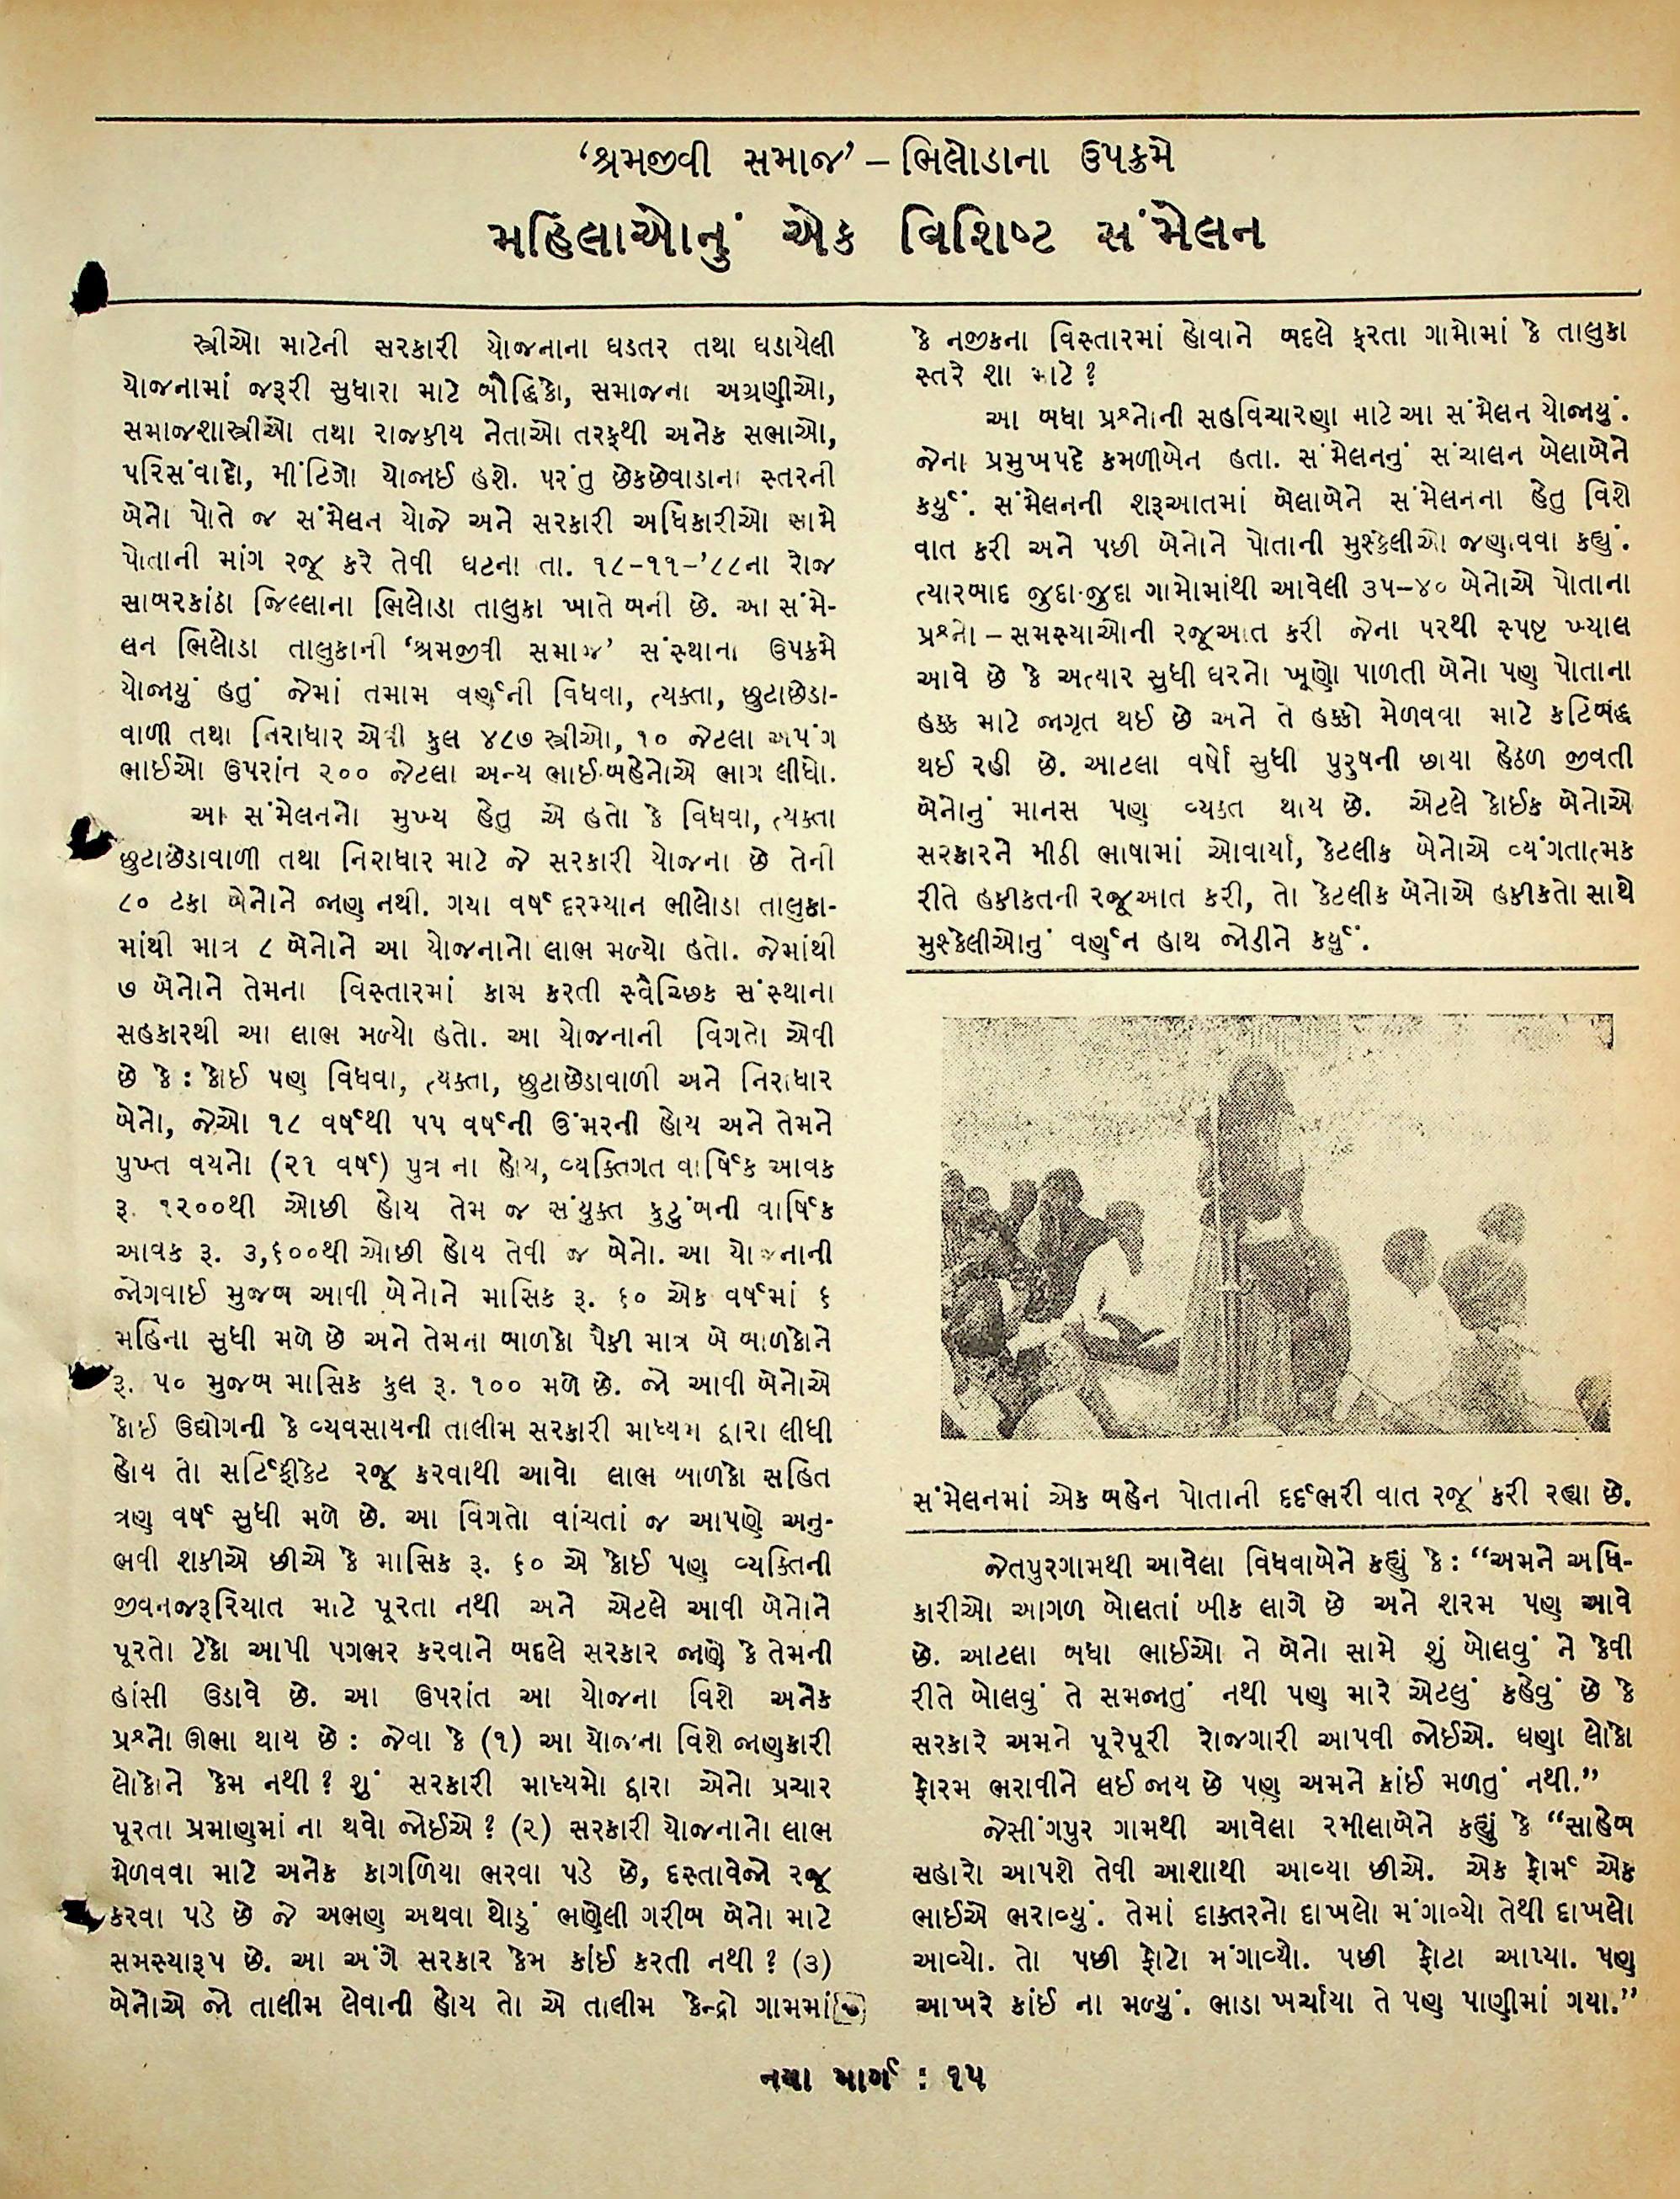 ‘શ્રમજીવી સમાજ’ – ભિલોડાના ઉપક્રમે
મહિલાઓનું એક વિશિષ્ટ સંમેલન
સ્ત્રીઓ માટેની સરકારી યોજનાના ઘડતર તથા ઘડાયેલી
યોજનામાં જરૂરી સુધારા માટે બૌદ્ધિકો, સમાજના અગ્રણીઓ,
સમાજશાસ્ત્રીઓ તથા રાજકીય નેતાઓ તરફથી અનેક સભાઓ,
પરિસંવાદો, મીટિંગો યોજાઈ હશે. પરંતુ છેકછેવાડાના સ્તરની
બેનો પોતે જ સંમેલન યોજે અને સરકારી અધિકારીઓ સામે
પોતાની માંગ રજૂ કરે તેવી ઘટના તા. ૧૮-૧૧-’૮૮ના રોજ
સાબરકાંઠા જિલ્લાના ભિલોડા તાલુકા ખાતે બની છે. આ સંમે-
લન ભિલોડા તાલુકાની ‘શ્રમજીવી સમાજ’ સંસ્થાના ઉપક્રમે
યોજાયું હતું જેમાં તમામ વર્ણની વિધવા, ત્યક્તા, છુટાછેડા-
વાળી તથા નિરાધાર એવી કુલ ૪૮૭ સ્ત્રીઓ, ૧૦ જેટલા અપંગ
ભાઈઓ ઉપરાંત ૨૦૦ જેટલા અન્ય ભાઈ-બહેનોએ ભાગ લીધો.
આ સંમેલનનો મુખ્ય હેતુ એ હતો કે વિધવા, ત્યક્તા
છુટાછેડાવાળી તથા નિરાધાર માટે જે સરકારી યોજના છે તેની
૮૦ ટકા બેનોને જાણ નથી. ગયા વર્ષ દરમ્યાન ભીલોડા તાલુકા-
માંથી માત્ર ૮ બેનોને આ યોજનાનો લાભ મળ્યો હતો. જેમાંથી
૭ બેનોને તેમના વિસ્તારમાં કામ કરતી સ્વૈચ્છિક સંસ્થાના
સહકારથી આ લાભ મળ્યો હતો. આ યોજનાની વિગતો એવી
છે કે : કોઈ પણ વિધવા, ત્યક્તા, છુટાછેડાવાળી અને નિરાધાર
બેનો, જેઓ ૧૮ વર્ષથી ૫૫ વર્ષની ઉંમરની હોય અને તેમને
પુખ્ત વયનો (૨૧ વર્ષ) પુત્ર ના હોય, વ્યક્તિગત વાર્ષિક આવક
રૂ. ૧૨૦૦થી ઓછી હોય તેમ જ સંયુક્ત કુટુંબની વાર્ષિક
આવક રૂ. ૩,૬૦૦થી ઓછી હોય તેવી જ બેનો. આ યોજનાની
જોગવાઈ મુજબ આવી બેનોને માસિક રૂ. ૬૦ એક વર્ષમાં ૬
મહિના સુધી મળે છે અને તેમના બાળકો પૈકી માત્ર બે બાળકોને
રૂ. ૫૦ મુજબ માસિક કુલ રૂ. ૧૦૦ મળે છે. જો આવી બેનોએ
કોઈ ઉદ્યોગની કે વ્યવસાયની તાલીમ સરકારી માધ્યમ દ્વારા લીધી
હોય તો સર્ટિફીકેટ રજૂ કરવાથી આવો લાભ બાળકો સહિત
ત્રણ વર્ષ સુધી મળે છે. આ વિગતો વાંચતાં જ આપણે અનુ-
ભવી શકીએ છીએ કે માસિક રૂ. ૬૦ એ કોઈ પણ વ્યક્તિની
જીવનજરૂરિયાત માટે પૂરતા નથી અને એટલે આવી બેનોને
પૂરતો ટેકો આપી પગભર કરવાને બદલે સરકાર જાણે કે તેમની
હાંસી ઉડાવે છે. આ ઉપરાંત આ યોજના વિશે અનેક
પ્રશ્નો ઊભા થાય છે : જેવા કે (૧) આ યોજના વિશે જાણકારી
લોકોને કેમ નથી ? શું સરકારી માધ્યમો દ્વારા એનો પ્રચાર
પૂરતા પ્રમાણમાં ના થવો જોઈએ ? (૨) સરકારી યોજનાનો લાભ
મેળવવા માટે અનેક કાગળિયા ભરવા પડે છે, દસ્તાવેજો રજૂ
કરવા પડે છે જે અભણ અથવા થોડું ભણેલી ગરીબ બેનો માટે
સમસ્યારૂપ છે. આ અંગે સરકાર કેમ કાંઈ કરતી નથી ? (૩)
બેનોએ જો તાલીમ લેવાની હોય તો એ તાલીમ કેન્દ્રો ગામમાં
કે નજીકના વિસ્તારમાં હોવાને બદલે ફરતા ગામોમાં કે તાલુકા
સ્તરે શા માટે ?
આ બધા પ્રશ્નોની સહવિચારણા માટે આ સંમેલન યોજાયું.
જેના પ્રમુખપદે કમળીબેન હતા. સંમેલનનું સંચાલન બેલાબેને
કર્યું. સંમેલનની શરૂઆતમાં બેલાબેને સંમેલનના હેતુ વિશે
વાત કરી અને પછી બેનોને પોતાની મુશ્કેલીઓ જણાવવા કહ્યું.
ત્યારબાદ જુદા-જુદા ગામોમાંથી આવેલી ૩૫-૪૦ બેનોએ પોતાના
પ્રશ્નો – સમસ્યાઓની રજૂઆત કરી જેના પરથી સ્પષ્ટ ખ્યાલ
આવે છે કે અત્યાર સુધી ઘરનો ખૂણો પાળતી બેનો પણ પોતાના
હક્ક માટે જાગૃત થઈ છે અને તે હક્કો મેળવવા માટે કટિબદ્ધ
થઈ રહી છે. આટલા વર્ષો સુધી પુરુષની છાયા હેઠળ જીવતી
બેનોનું માનસ પણ વ્યક્ત થાય છે. એટલે કોઈક બેનોએ
સરકારને મીઠી ભાષામાં ઓવાર્યા, કેટલીક બેનોએ વ્યંગતાત્મક
રીતે હકીકતની રજૂઆત કરી, તો કેટલીક બેનોએ હકીકતો સાથે
મુશ્કેલીઓનું વર્ણન હાથ જોડીને કર્યું.
સંમેલનમાં એક બહેન પોતાની દર્દભરી વાત રજૂ કરી રહ્યા છે.
જેતપુરગામથી આવેલા વિધવાબેને કહ્યું કે : “અમને અધિ-
કારીઓ આગળ બોલતાં બીક લાગે છે અને શરમ પણ આવે
છે. આટલા બધા ભાઈઓ ને બેનો સામે શું બોલવું ને કેવી
રીતે બોલવું તે સમજાતું નથી પણ મારે એટલું કહેવું છે કે
સરકારે અમને પૂરેપૂરી રોજગારી આપવી જોઈએ. ઘણા લોકો
ફોરમ ભરાવીને લઈ જાય છે પણ અમને કાંઈ મળતું નથી.”
જેસીંગપુર ગામથી આવેલા રમીલાબેને કહ્યું કે “સાહેબ
સહારો આપશે તેવી આશાથી આવ્યા છીએ. એક ફોર્મ એક
ભાઈએ ભરાવ્યું. તેમાં દાક્તરનો દાખલો મંગાવ્યો તેથી દાખલો
આવ્યો. તો પછી ફોટો મંગાવ્યો. પછી ફોટા આપ્યા. પણ
આખરે કાંઈ ના મળ્યું. ભાડા ખર્ચાયા તે પણ પાણીમાં ગયા.”
નયા માર્ગ : ૧૫